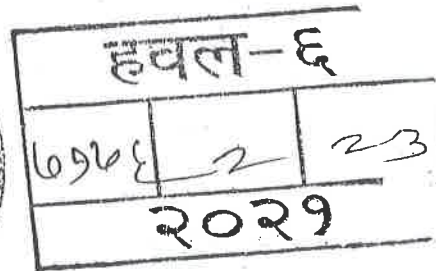 हवल-६
७१७६ 2 23
२०२१